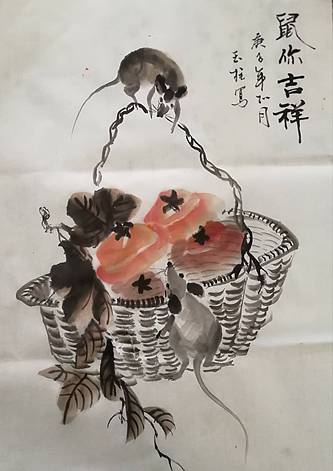 鼠你吉祥
庚子年月
玉柱寫